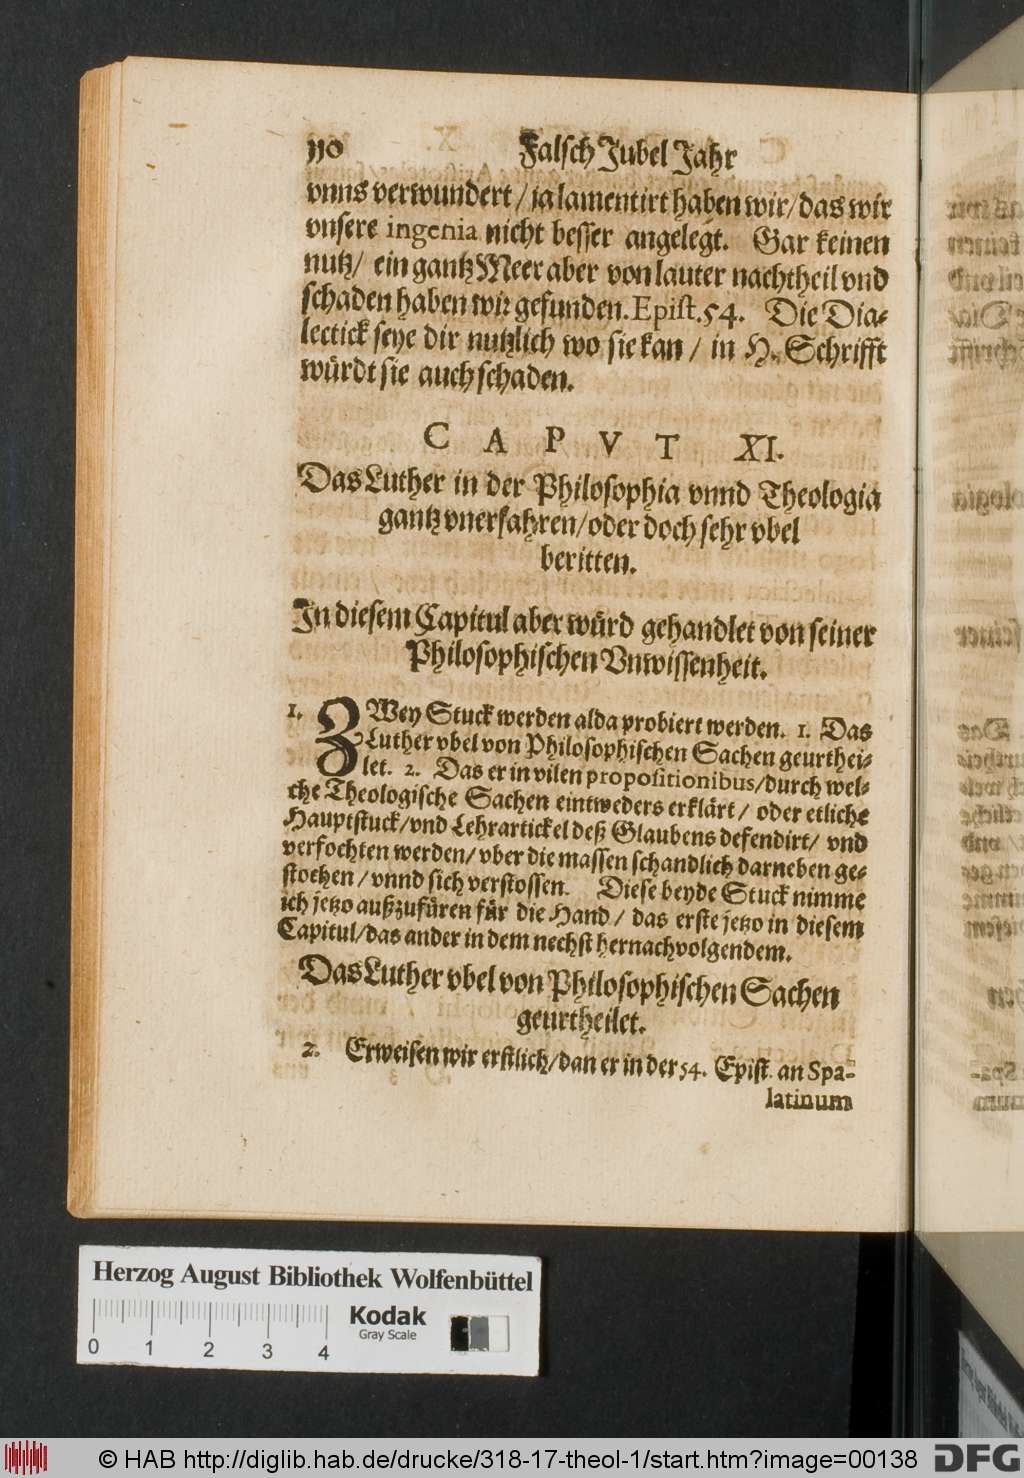 110 Falsch Jubel Jahr
vnns verwundert / ja lamentirt haben wir / das wir
vnsere ingenia nicht besser angelegt. Gar keinen
nutz / ein gantz Meer aber von lauter nachtheil vnd
schaden haben wir gefunden. Epist. 54. Die Dia-
lectick seye dir nutzlich wo sie kan / in H. Schrifft
würdt sie auch schaden.
CAPVT XI.
Das Luther in der Philosophia vnnd Theologia
gantz vnerfahren / oder doch sehr vbel
beritten.
In diesem Capitul aber würd gehandlet von seiner
Philosophischen Vnwissenheit.
1. ZWey Stuck werden alda probiert werden. 1. Das
Luther vbel von Philosophischen Sachen geurthei-
let. 2. Das er in vilen propositionibus / durch wel-
che Theologische Sachen eintweders erklärt / oder etliche
Hauptstuck / vnd Lehrartickel deß Glaubens defendirt / vnd
verfochten werden / vber die massen schandlich darneben ge-
stochen / vnnd sich verstossen. Diese beyde Stuck nimme
ich jetzo außzufüren für die Hand / das erste jetzo in diesem
Capitul / das ander in dem nechst hernachvolgendem.
Das Luther vbel von Philosophischen Sachen
geurtheilet.
2. Erweisen wir erstlich / dan er in der 54. Epist. an Spa-
latinum
Herzog August Bibliothek Wolfenbüttel
Kodak
Gray Scale
0 1 2 3 4
© HAB http://diglib.hab.de/drucke/318-17-theol-1/start.htm?image=00138
DFG